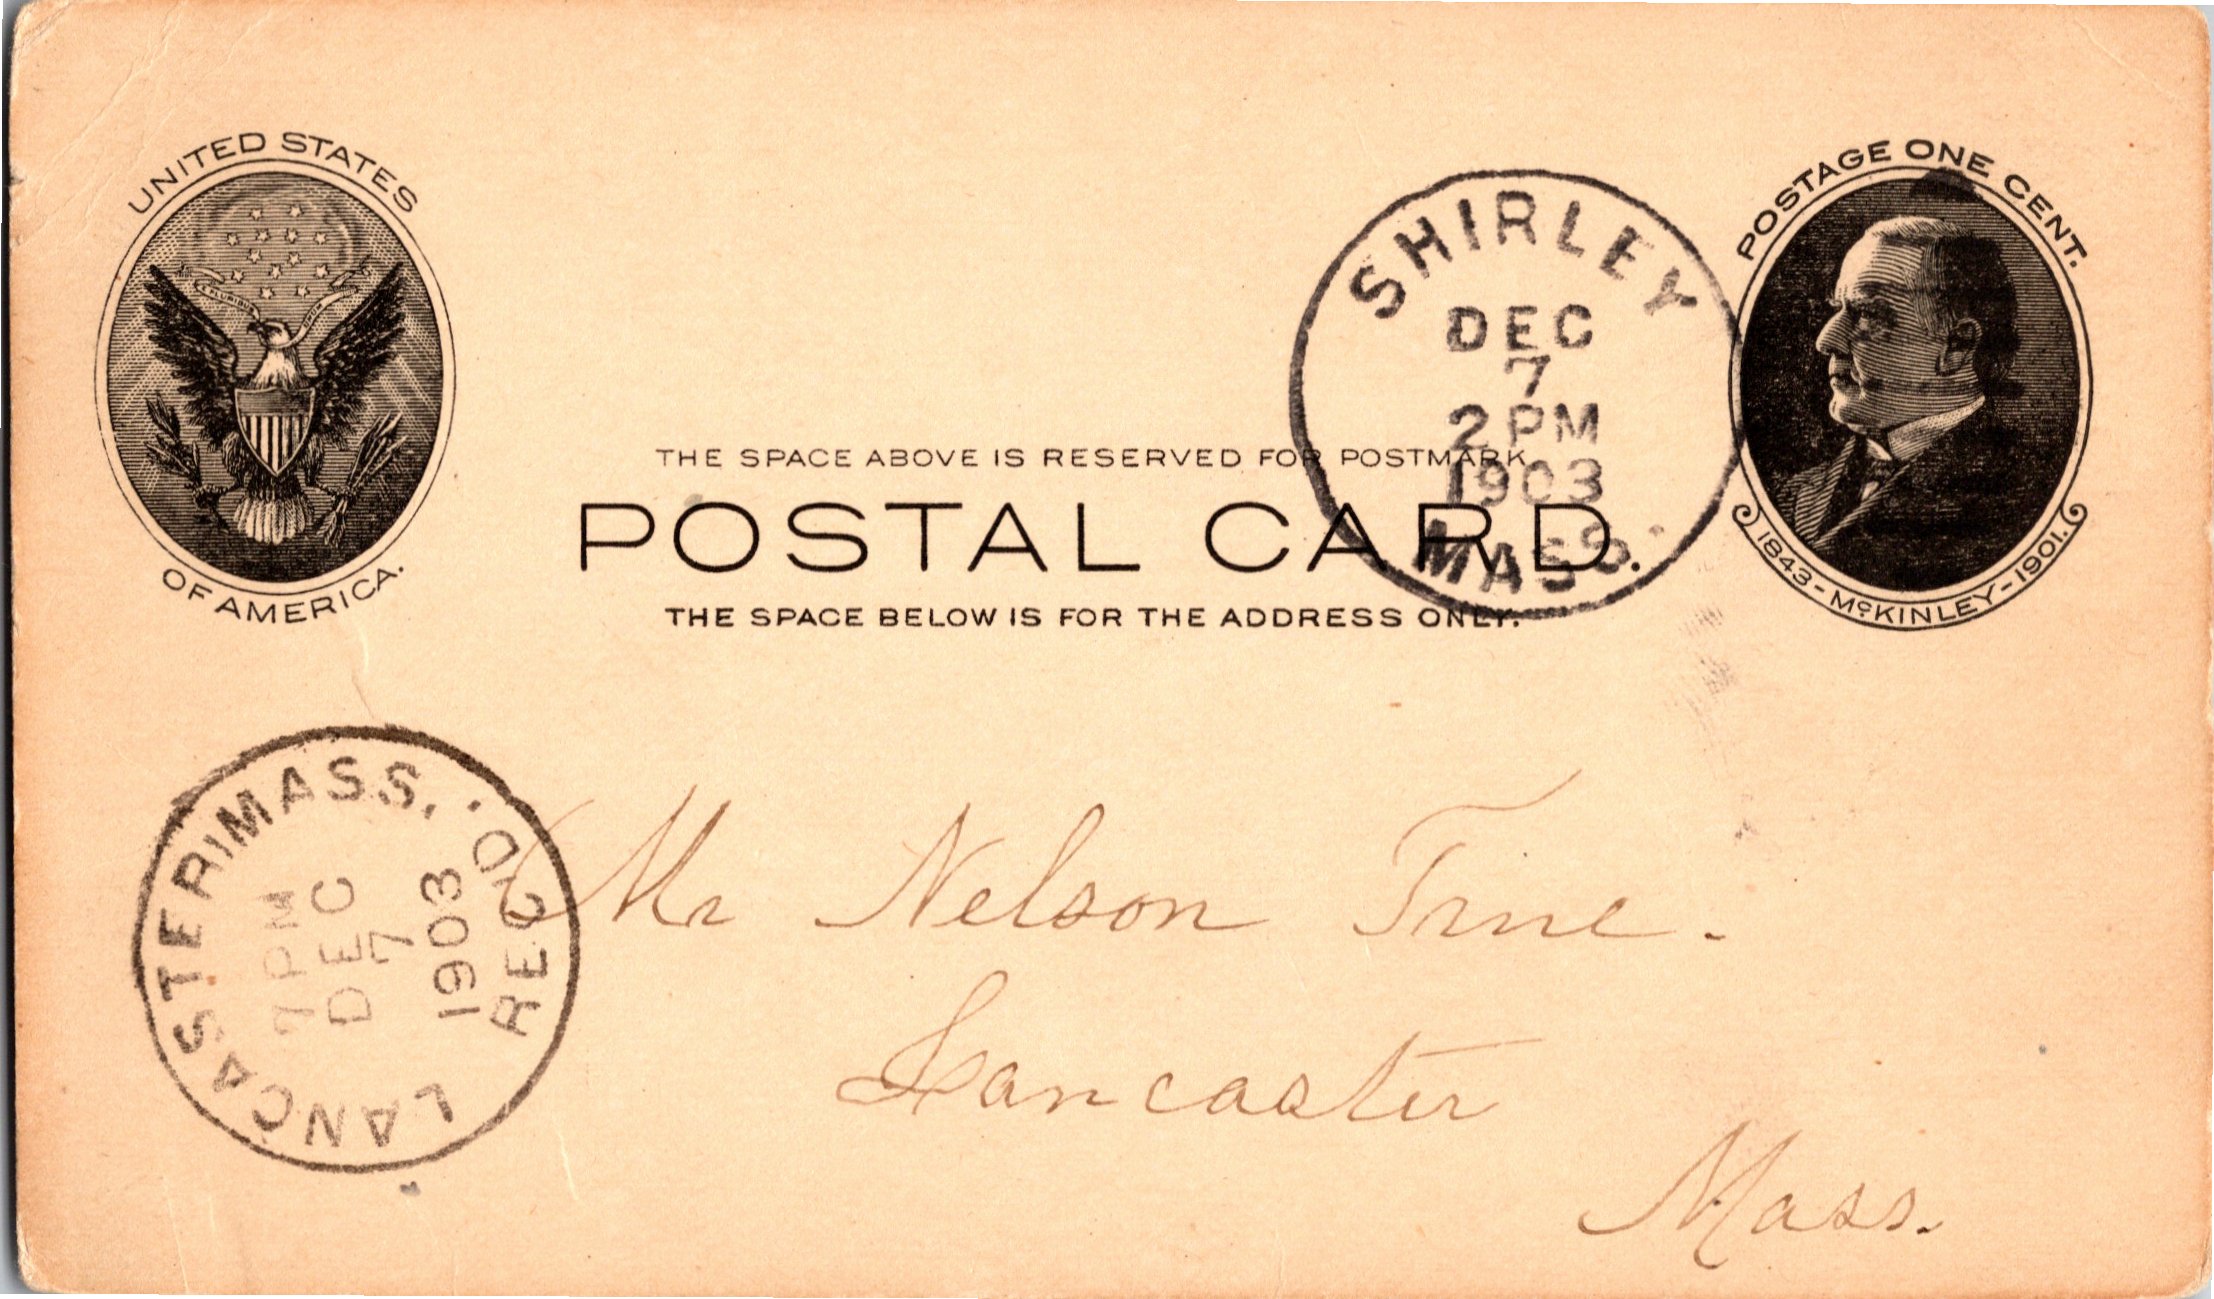 UNITED STATES
OF AMERICA.
POSTAGE ONE CENT.
1843-McKINLEY-1901.
SHIRLEY
DEC
7
2 PM
1903
MASS.
THE SPACE ABOVE IS RESERVED FOR POSTMARK
POSTAL CARD.
THE SPACE BELOW IS FOR THE ADDRESS ONLY.
LANCASTER, MASS.
7 PM
DEC
7
1903
REC'D.
Mr Nelson
Lancaster
Mass.